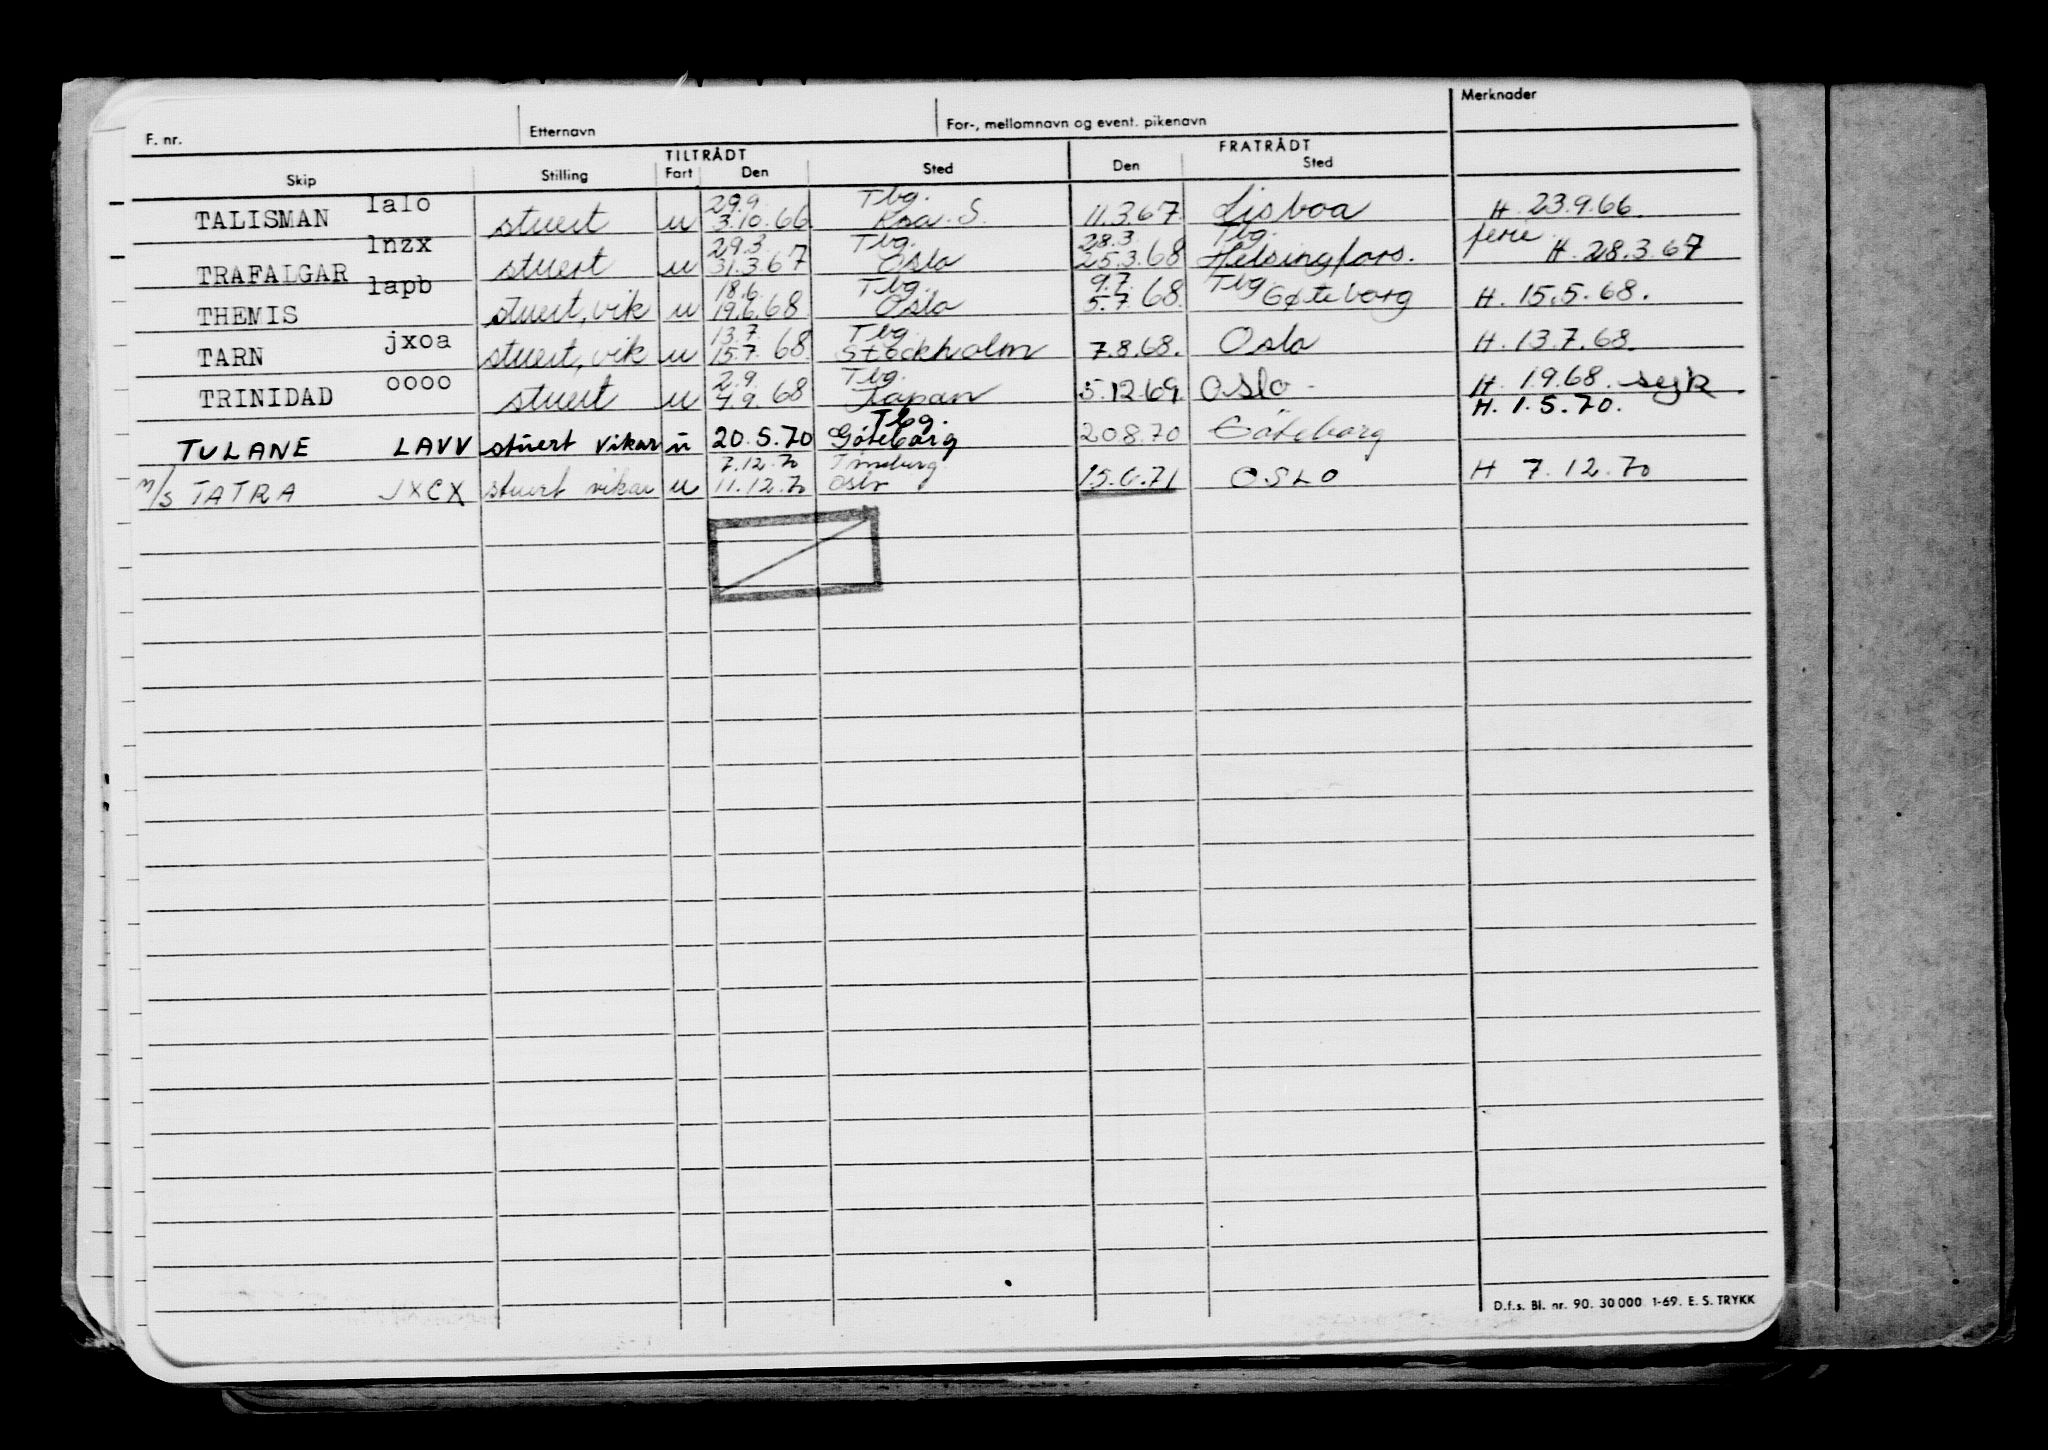 F. nr. Etternavn For-, mellomnavn og event. pikenavn Merknader
TILTRÅDT FRATRÅDT
Skip Stilling Fart Den Sted Den Sted
29.9. Tbg.
TALISMAN lalo stuert u 3.10.66 Kra. S. 11.3.67. Lisboa H. 23.9.66.
29.3. Tbg. 28.3. Tbg. ferie
TRAFALGAR lnzx stuert u 31.3.67 Oslo 25.3.68 Helsingfors. H. 28.3.67
18.6. Tbg. 9.7. Tbg
THEMIS lapb stuert, vik u 19.6.68 Oslo 5.7.68. Gøteborg H. 15.5.68.
13.7. Tbg.
TARN jxoa stuert, vik u 15.7.68. Stockholm 7.8.68. Oslo H. 13.7.68.
2.9. Tbg.
TRINIDAD oooo stuert u 4.9.68 Japan 5.12.69. Oslo. H. 1.9.68. syk
Tbg. H. 1.5.70.
TULANE LAVV stuert vikar u 20.5.70 Göteborg 20.8.70 Göteborg
7.12.70 Tønsberg
M/S TATRA JXCX stuert vikar u 11.12.70 Oslo 15.6.71 OSLO H 7.12.70
D.f.s. Bl. nr. 90. 30 000 1-69. E. S. TRYKK